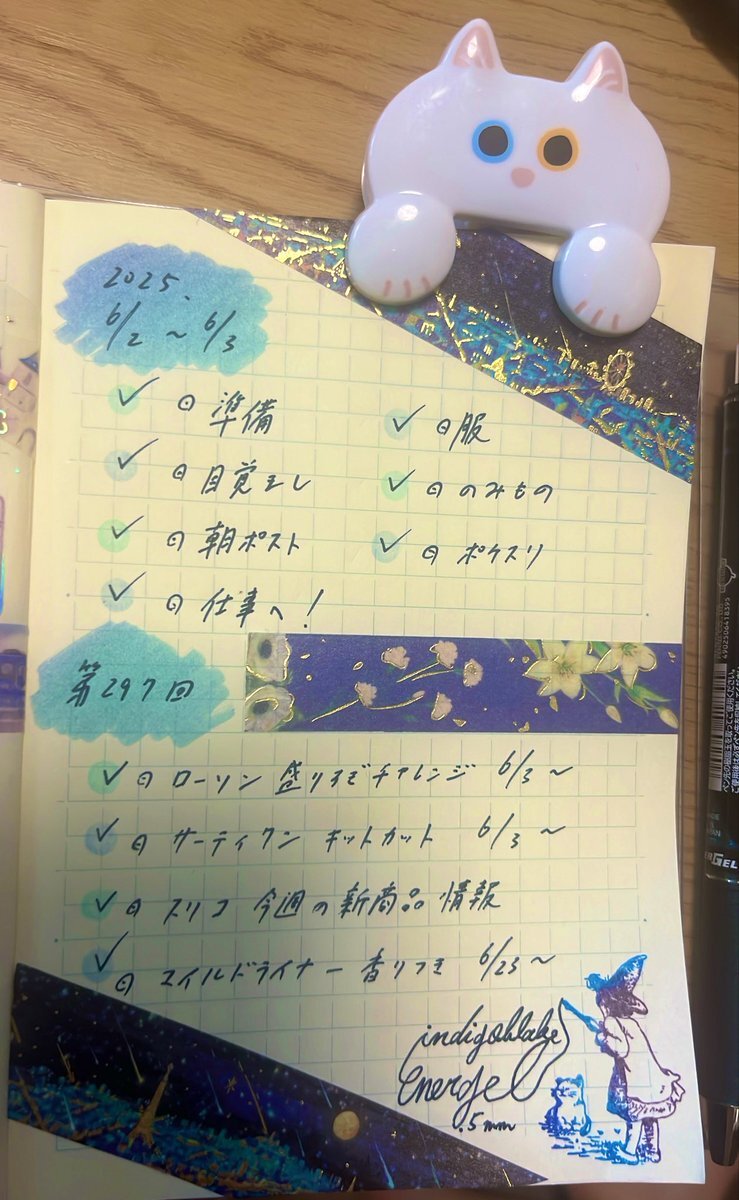 2025.
6/2 ~ 6/3
準備
服
目覚まし
のみもの
朝ポスト
ポケスリ
仕事へ!
第297回
ローソン 盛りすぎチャレンジ 6/3~
サーティワン キットカット 6/3~
スリコ 今週の新商品情報
マイルドライナー 香りつき 6/23~
energel
.5mm
4902506418395